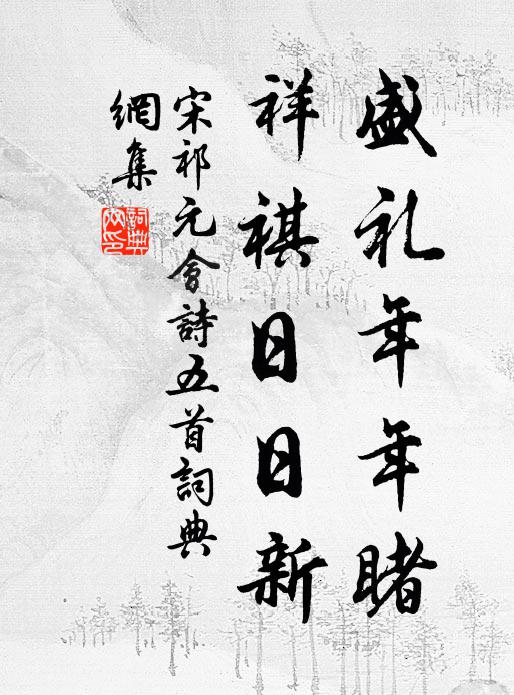 盛礼年年睹
祥祺日日新
宋祁元會詩五首詞典
網集
詞典網印